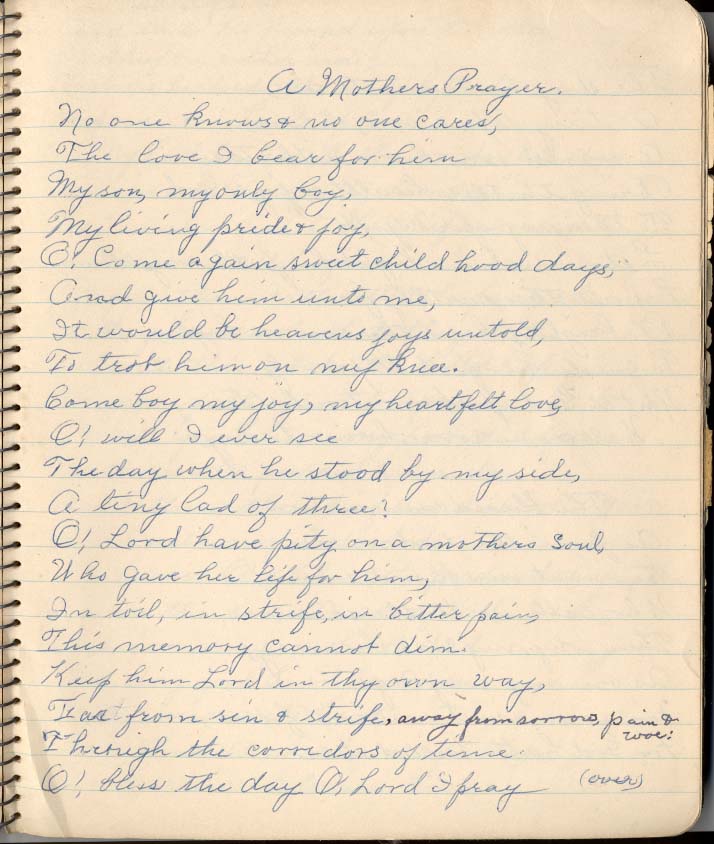 A Mothers Prayer.
No one knows & no one cares,
The love I bear for him
My son, my only boy,
My living pride & joy,
O! Come again sweet child hood days,
And give him unto me,
It would be heavens joys untold,
To trot him on my knee.
Come boy my joy, my heartfelt love,
O! will I ever see
The day when he stood by my side,
A tiny lad of three?
O! Lord have pity on a mothers soul,
Who gave her life for him,
In toil, in strife, in bitter pain,
This memory cannot dim.
Keep him Lord in thy own way,
from sin & strife, away from sorrow, pain &
woe:
Through the corridors of time.
O! bless the day O, Lord I pray (over)